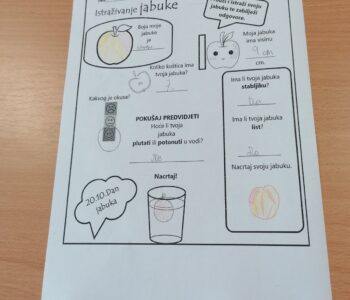 Istraživanje jabuke
i istraži svoju
jabuku te zabilježi
odgovore.
Boja moje
jabuke
je
Moja jabuka
ima visinu
9 cm
cm.
Koliko koštica ima
tvoja jabuka?
Kakvog je okusa?
Ima li tvoja jabuka
stabljiku?
POKUŠAJ PREDVIDJETI
Hoće li tvoja
jabuka
plutati ili potonuti u vodi?
Ima li tvoja jabuka
list?
Nacrtaj svoju jabuku.
Nacrtaj!
20.10.Dan
jabuka